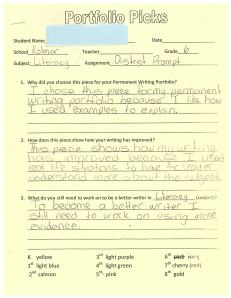 Portfolio Picks
Student Name Date
School Kolmar Teacher Grade 6
Subject Literacy Assignment District Prompt
1. Why did you choose this piece for your Permanent Writing Portfolio?
I chose this piece for my permanent
writing portfolio because I like how
I used examples to explain.
2. How does this piece show how your writing has improved?
This piece shows how my writing
has improved because I used
real life situations to have the reader
understand more about the subject.
3. What do you still need to work on to be a better writer in Literacy (subject)?
To become a better writer I
still need to work on using more
evidence.
K yellow 3rd light purple 6th
1st light blue 4th light green 7th cherry (red)
2nd salmon 5th- pink 8th gold